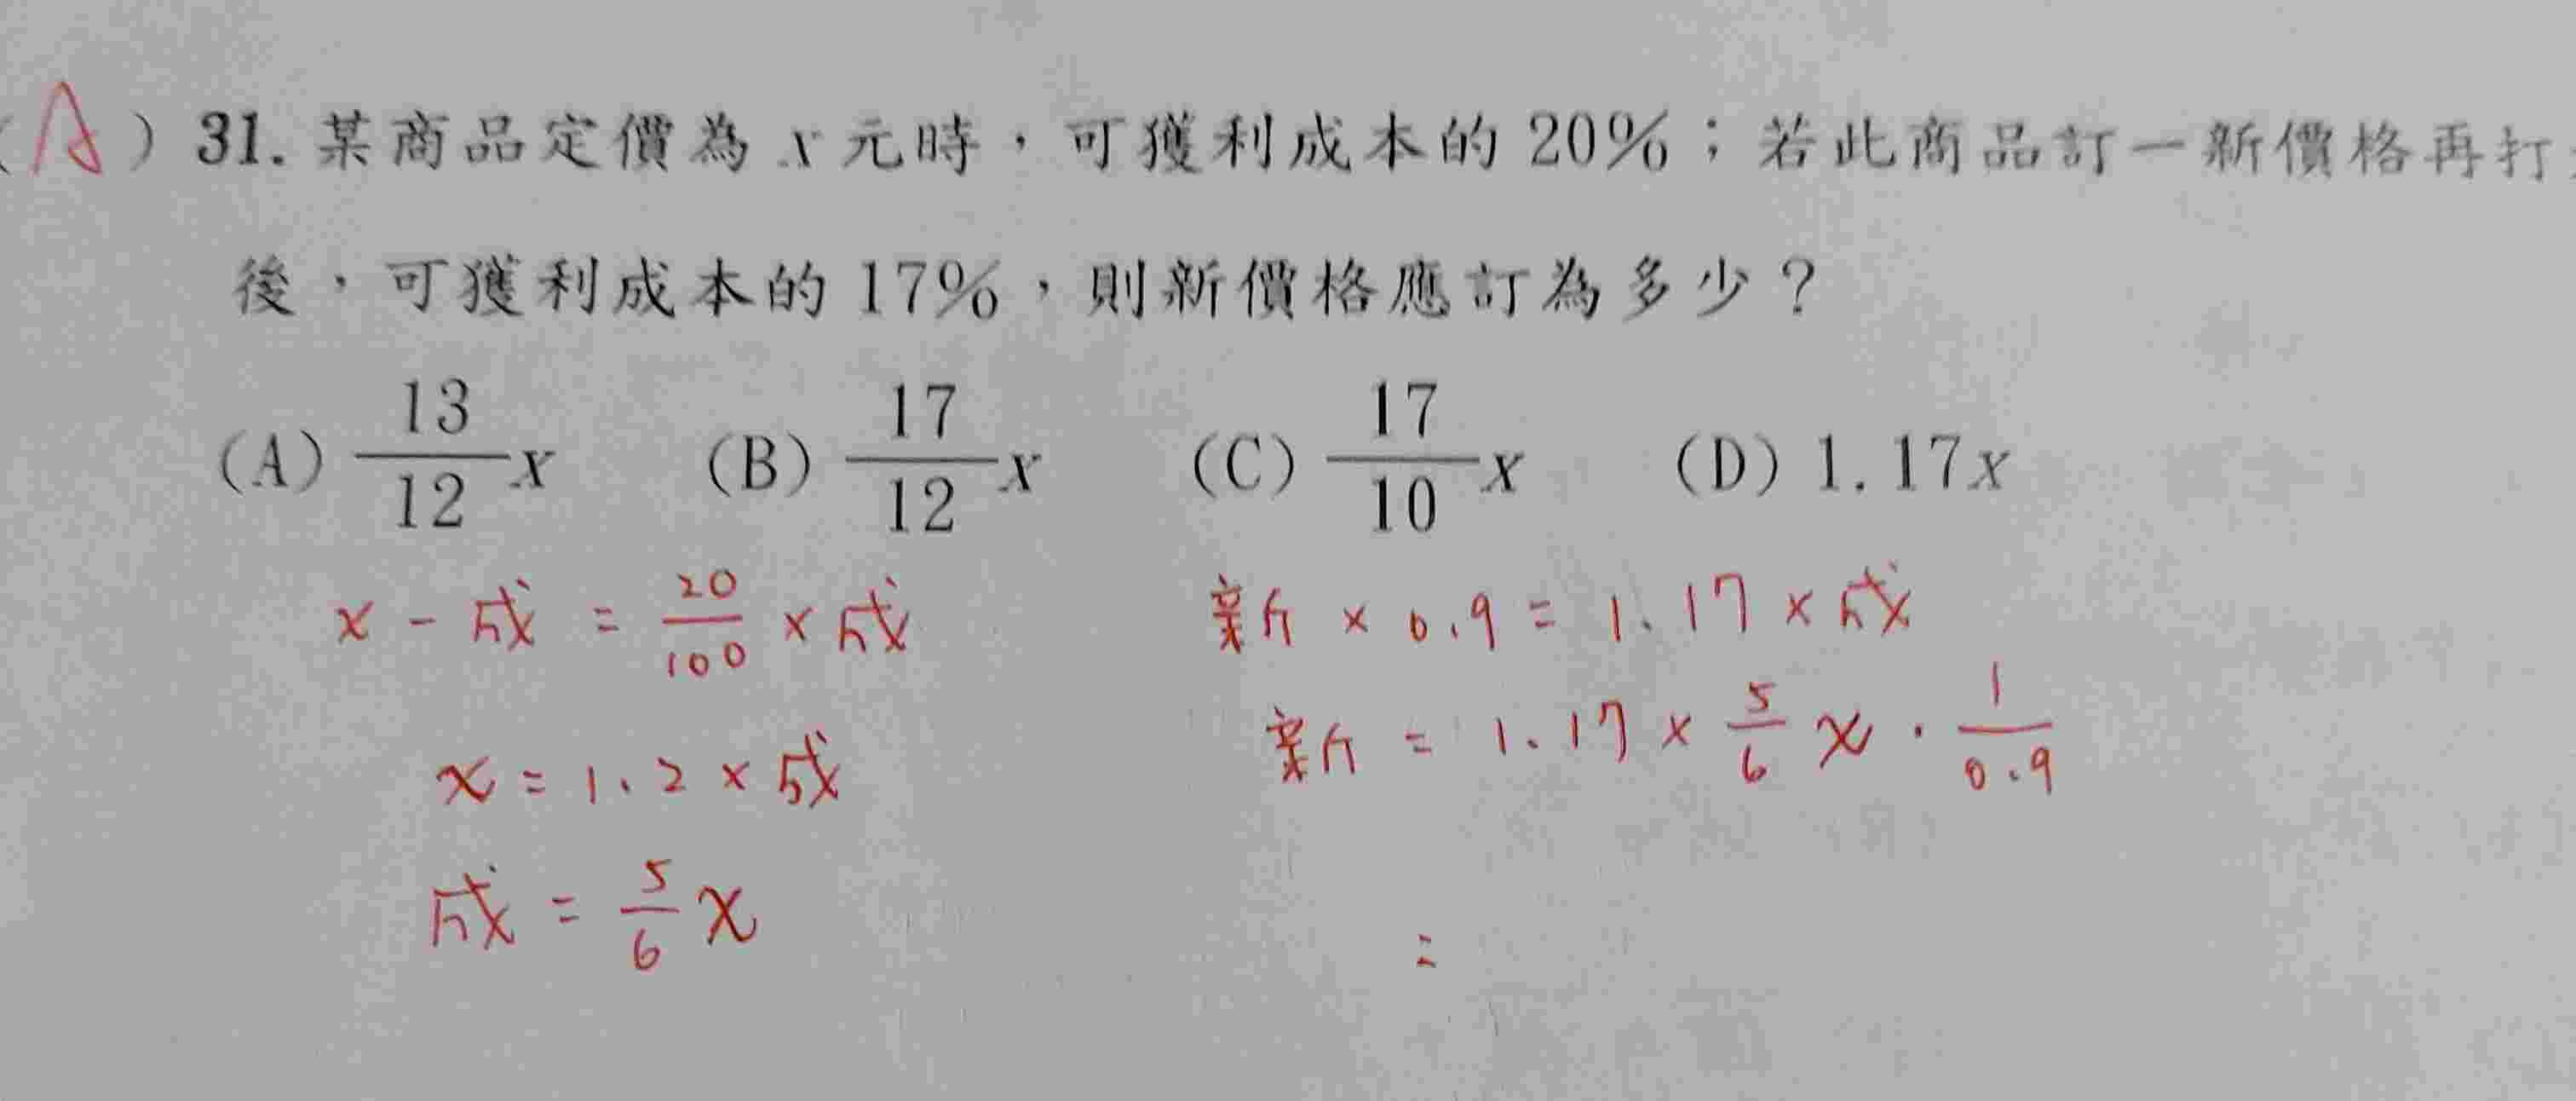 (A) 31. 某商品定價為 x 元時，可獲利成本的 20%；若此商品訂一新價格再打
後，可獲利成本的 17%，則新價格應訂為多少？
(A) 13/12 x (B) 17/12 x (C) 17/10 x (D) 1.17x
x - 成 = 20/100 × 成
新 × 0.9 = 1.17 × 成
x = 1.2 × 成
新 = 1.17 × 5/6 x · 1/0.9
成 = 5/6 x
=